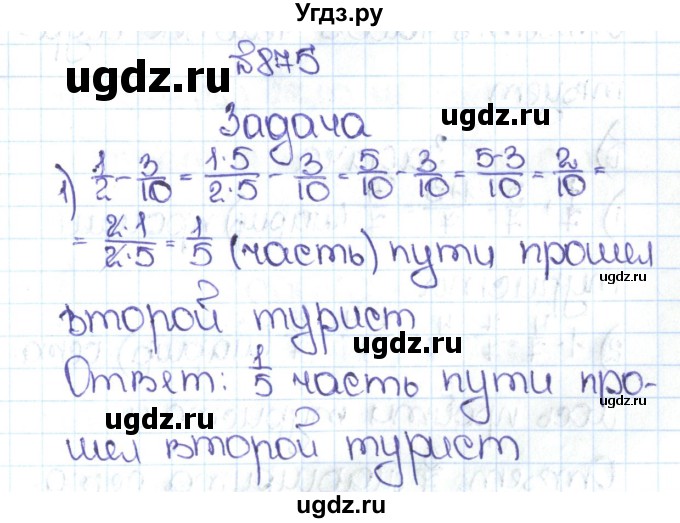 Угдз.ру
№875
ugdz.ru
Задача
ugdz.ru
1) 1/2 - 3/10 = 1·5/2·5 - 3/10 = 5/10 - 3/10 = 5-3/10 = 2/10 =
= 2·1/2·5 = 1/5 (часть) пути прошел
ugdz.ru
второй турист
ugdz.ru
ugdz.ru
Ответ: 1/5 часть пути про-
ugdz.ru
шел второй турист
ugdz.ru
ugdz.ru
ugdz.ru